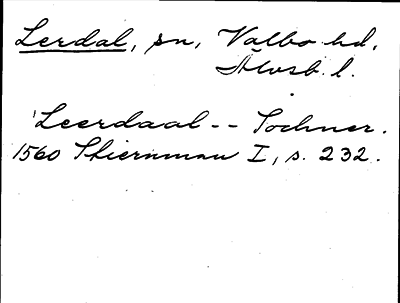 Lerdal, sn, Valbo hd,
Älvsb. l.
'Leerdaal -- Sochner.
1560 Stiernman I, s. 232.